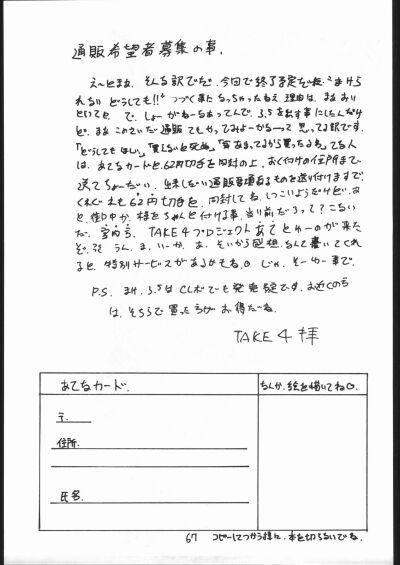 通販希望者募集の事.
え〜とまぁ、そんな訳でだ、今回で終了予定
られない どうしても!! つづく事に なっちゃったねえ、理由は、まぁ おい
といてと で、しょーがねーなあってんで、3.5を出す事にしたんだけ
ど、まぁ このさいだ 通販 でもやってみよーかなーって 思ってる訳です。
「どうしても ほしい」「買えないと死ぬ」 てな人
は、あてなカードと、62円切手を同封の上、おくつけの住所まで、
送ってちょーだい、 通販 ものを送り付けますで、
くれぐれも 62円切手を、同封してね、しつこいようだけど、
と、 様をちゃんと付ける事、当り前だろって? こない
だ、 TAKE4プロジェクト あて とゆーのが来た
ぞ、 うん、ま、いーか、 あ、そいから 感想、なんて書いてくれ
ると、特別サービスがあるかもね。 じゃ、そーゆー事で。
P.S. 3.5は CLボでも発売 予定です。お近くの方
は、そちらで買った お得だーね。
TAKE4 拝
あてなカード.
〒.
住所.
氏名.
なんか、絵を描いてね
67 コピーしてつかう様に、本を切らないでね.